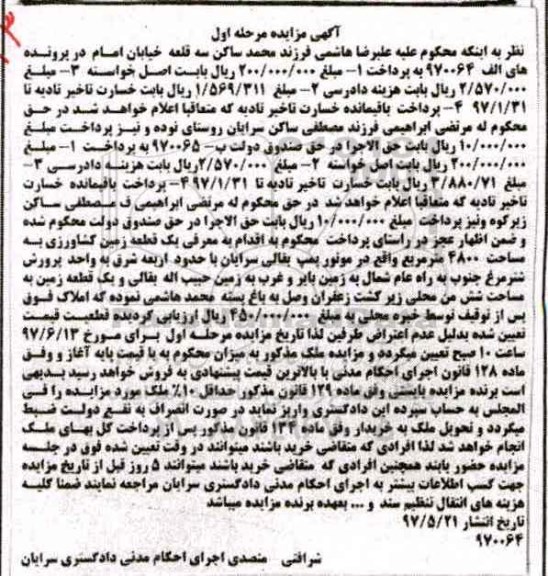 آگهی مزایده مرحله اول
نظر به اینکه محکوم علیه علیرضا هاشمی فرزند محمد ساکن سه قلعه خیابان امام در پرونده
های الف ۹۷۰۰۶۴ به پرداخت ۱- مبلغ ۲۰۰/۰۰۰/۰۰۰ ریال بابت اصل خواسته ۳- مبلغ
۲/۵۷۰/۰۰۰ ریال بابت هزینه دادرسی ۲- مبلغ ۱/۵۶۹/۳۱۱ ریال بابت خسارت تاخیر تادیه تا
۹۷/۱/۳۱ ۴- پرداخت باقیمانده خسارت تاخیر تادیه که متعاقبا اعلام خواهد شد در حق
محکوم له مرتضی ابراهیمی فرزند مصطفی ساکن سرایان روستای نوده و نیز پرداخت مبلغ
۱۰/۰۰۰/۰۰۰ ریال بابت حق الاجرا در حق صندوق دولت ب- ۹۷۰۰۶۵ به پرداخت ۱- مبلغ
۲۰۰/۰۰۰/۰۰۰ ریال بابت اصل خواسته ۲- مبلغ ۲/۵۷۰/۰۰۰ ریال بابت هزینه دادرسی ۳-
مبلغ ۳/۸۸۰/۷۱ ریال بابت خسارت تاخیر تادیه تا ۹۷/۱/۳۱ ۴- پرداخت باقیمانده خسارت
تاخیر تادیه که متعاقبا اعلام خواهد شد در حق محکوم له مرتضی ابراهیمی ف مصطفی ساکن
زیرکوه ونیز پرداخت مبلغ ۱۰/۰۰۰/۰۰۰ ریال بابت حق الاجرا در حق صندوق دولت محکوم شده
و ضمن اظهار عجز در راستای پرداخت محکوم به اقدام به معرفی یک قطعه زمین کشاورزی به
مساحت ۴۸۰۰ مترمربع واقع در موتور پمپ بقالی سرایان با حدود اربعه شرق به واحد پرورش
شترمرغ جنوب به راه عام شمال به زمین بایر و غرب به زمین حبیب اله بقالی و یک قطعه زمین به
مساحت شش من محلی زیر کشت زعفران وصل به باغ بسته محمد هاشمی نموده که املاک فوق
پس از توقیف توسط خبره محلی به مبلغ ۴۵۰/۰۰۰/۰۰۰ ریال ارزیابی گردیده قطعیت قیمت
تعیین شده بدلیل عدم اعتراض طرفین لذا تاریخ مزایده مرحله اول برای مورخ ۹۷/۶/۱۳
ساعت ۱۰ صبح تعیین میگردد و مزایده ملک مذکور به میزان محکوم به با قیمت پایه آغاز و وفق
ماده ۱۲۸ قانون اجرای احکام مدنی با بالاترین قیمت پیشنهادی به فروش خواهد رسید بدیهی
است برنده مزایده بایستی وفق ماده ۱۲۹ قانون مذکور حداقل ۱۰٪ ملک مورد مزایده را فی
المجلس به حساب سپرده این دادگستری واریز نماید در صورت انصراف به نفع دولت ضبط
میگردد و تحویل ملک به خریدار وفق ماده ۱۳۴ قانون مذکور پس از پرداخت کل بهای ملک
انجام خواهد شد لذا افرادی که متقاضی خرید باشند میتوانند در وقت تعیین شده فوق در جلسه
مزایده حضور یابند همچنین افرادی که متقاضی خرید باشند میتوانند ۵ روز قبل از تاریخ مزایده
جهت کسب اطلاعات بیشتر به اجرای احکام مدنی دادگستری سرایان مراجعه نمایند ضمنا کلیه
هزینه های انتقال تنظیم سند و ... بعهده برنده مزایده میباشد
تاریخ انتشار ۹۷/۵/۲۱
۹۷۰۰۶۴
شرافتی متصدی اجرای احکام مدنی دادگستری سرایان